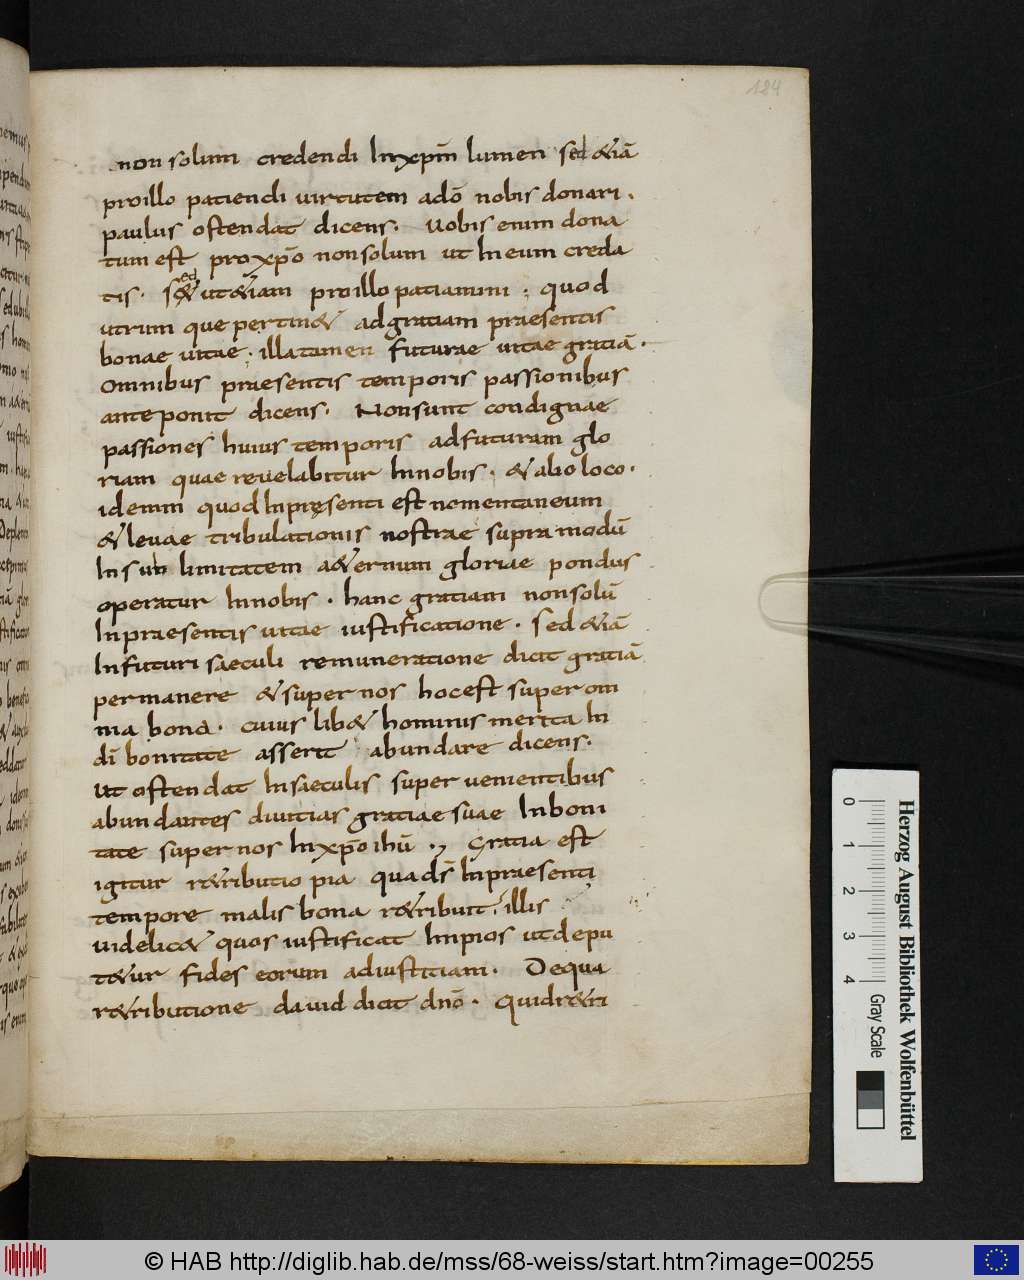 184
non solum credendi Inxpm̄ lumen sed &iā
proillo patiendi uirtutem adō nobis donari.
paulus ostendat dicens. Uobis enim dona
tum est proxpo̅ nonsolum ut In eum creda
tis. s&ed ut&iam proillo patiamini; quod
utrum que pertin& adgratiam praesentis
bonae uitae. illa tamen futurae uitae gratiā.
omnibus praesentis temporis passionibus
anteponit dicens. Non sunt condignae
passiones huius temporis adfuturam glo
riam quae reuelabitur Innobis. & alio loco.
idemm quod Inpręsenti est nomentaneum
& leuae tribulationis nostrae supra modū
In sub limitatem a&ernum gloriae pondus
operatur Innobis. hanc gratiam nonsolū
Inpraesentis uitae iustificatione. sed &iā
Infuturi saeculi remuneratione dicit gratiā
permanere & super nos hoc est super om
nia bona. cuius lib& hominis merita In
dī bonitate asserit abundare dicens.
Ut ostendat Insaeculis super uenientibus
abundantes diuitias gratiae suae In boni
tate super nos Inxpo̅ ihū ., Gratia est
igitur r&ributio pia qua ds̄ Inpraesenti
tempore malis bona r&ribuit. illis
uidelic& quos iustificat Impios ut depu
t&ur fides eorum adiustitiam. Dequa
r&ributione dauid dicit dnō. Quidr&ri
0 1 2 3 4
Herzog August Bibliothek Wolfenbüttel
Gray Scale
© HAB http://diglib.hab.de/mss/68-weiss/start.htm?image=00255